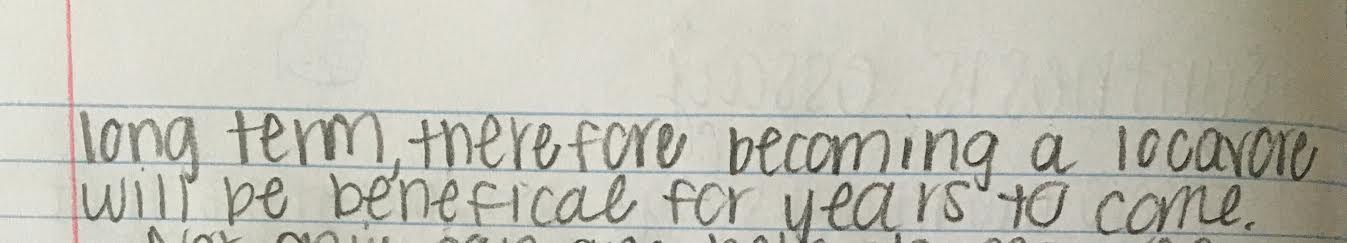 long term, therefore becoming a locavore
will be benefical for years to come.
Not only can